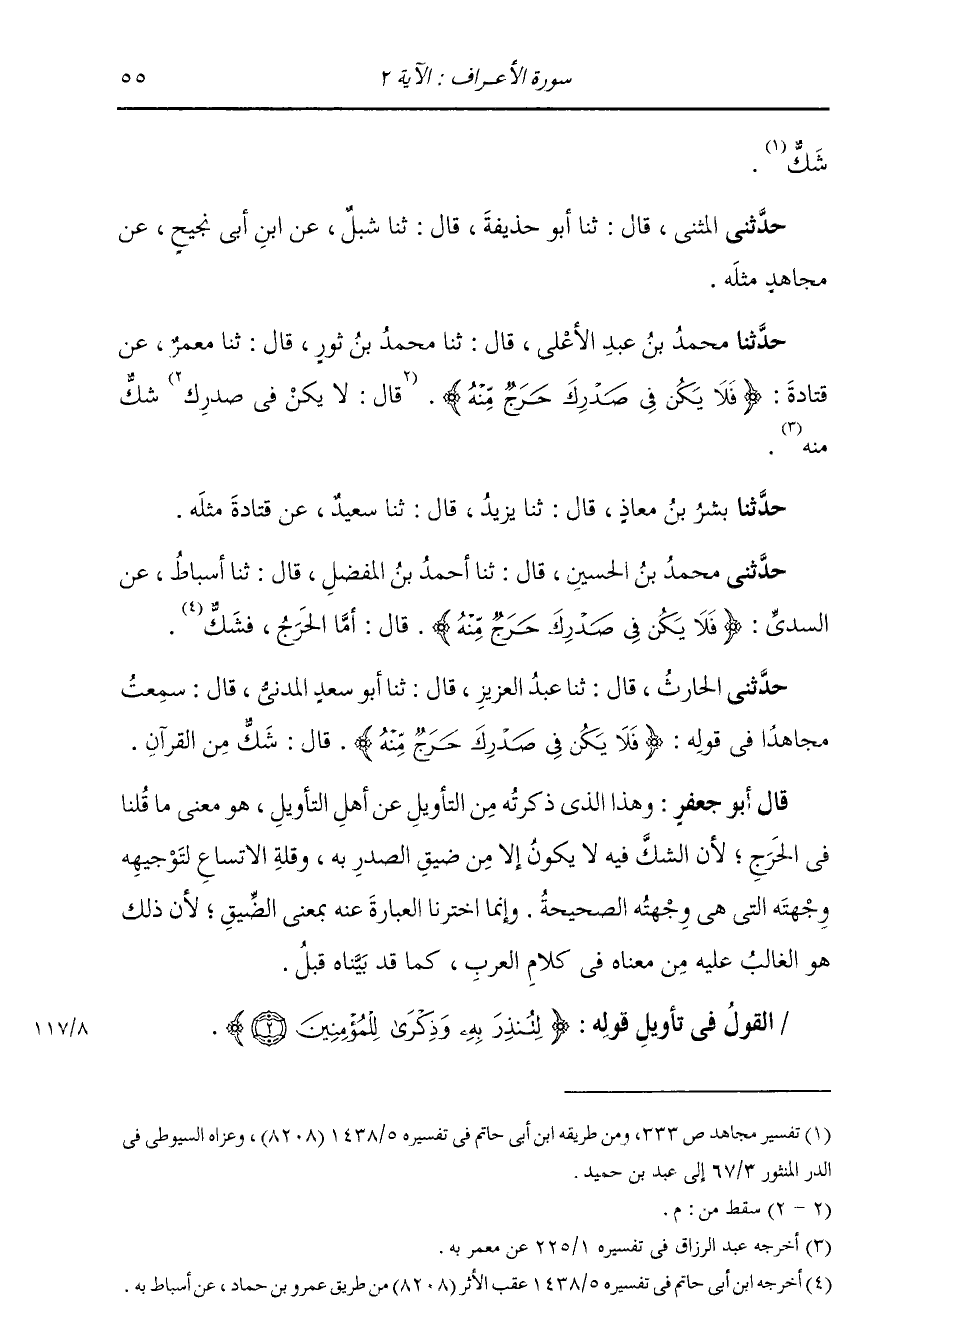 سورة الأعراف : الآية ٢ ٥٥
شَكٌّ(١) .
حدَّثنى المثنى ، قال : ثنا أبو حذيفةَ ، قال : ثنا شبلٌ ، عن ابنِ أبى نجيحٍ ، عن
مجاهدٍ مثلَه .
حدَّثنا محمدُ بنُ عبدِ الأعْلى ، قال : ثنا محمدُ بنُ ثورٍ ، قال : ثنا معمرٌ ، عن
قتادةَ : ﴿ فَلَا يَكُن فِى صَدْرِكَ حَرَجٌ مِّنْهُ ﴾ . (٢قال : لا يكنْ فى صدرِك٢) شكٌّ
منه(٣) .
حدَّثنا بشرُ بنُ معاذٍ ، قال : ثنا يزيدُ ، قال : ثنا سعيدٌ ، عن قتادةَ مثلَه .
حدَّثنى محمدُ بنُ الحسينِ ، قال : ثنا أحمدُ بنُ المفضلِ ، قال : ثنا أسباطُ ، عن
السدىِّ : ﴿ فَلَا يَكُن فِى صَدْرِكَ حَرَجٌ مِّنْهُ ﴾ . قال : أمَّا الحَرَجُ ، فشَكٌّ(٤) .
حدَّثنى الحارثُ ، قال : ثنا عبدُ العزيزِ ، قال : ثنا أبو سعدٍ المدنىُّ ، قال : سمِعتُ
مجاهدًا فى قولِه : ﴿ فَلَا يَكُن فِى صَدْرِكَ حَرَجٌ مِّنْهُ ﴾ . قال : شَكٌّ مِن القرآنِ .
قال أبو جعفرٍ : وهذا الذى ذكرتُه مِن التأويلِ عن أهلِ التأويلِ ، هو معنى ما قُلنا
فى الحَرَجِ ؛ لأن الشكَّ فيه لا يكونُ إلا مِن ضيقِ الصدرِ به ، وقلةِ الاتساعِ لتَوْجيهِه
وِجْهتَه التى هى وِجْهتُه الصحيحةُ . وإنما اخترنا العبارةَ عنه بمعنى الضِّيقِ ؛ لأن ذلك
هو الغالبُ عليه مِن معناه فى كلامِ العربِ ، كما قد بَيَّناه قبلُ .
/ القولُ فى تأويلِ قولِه : ﴿ لِتُنذِرَ بِهِۦ وَذِكْرَىٰ لِلْمُؤْمِنِينَ ٢ ﴾ . ١١٧/٨
(١) تفسير مجاهد ص ٣٣٣، ومن طريقه ابن أبى حاتم فى تفسيره ١٤٣٨/٥ (٨٢٠٨) ، وعزاه السيوطى فى
الدر المنثور ٦٧/٣ إلى عبد بن حميد .
(٢ - ٢) سقط من : م .
(٣) أخرجه عبد الرزاق فى تفسيره ٢٢٥/١ عن معمر به .
(٤) أخرجه ابن أبى حاتم فى تفسيره ١٤٣٨/٥ عقب الأثر (٨٢٠٨) من طريق عمرو بن حماد ، عن أسباط به .